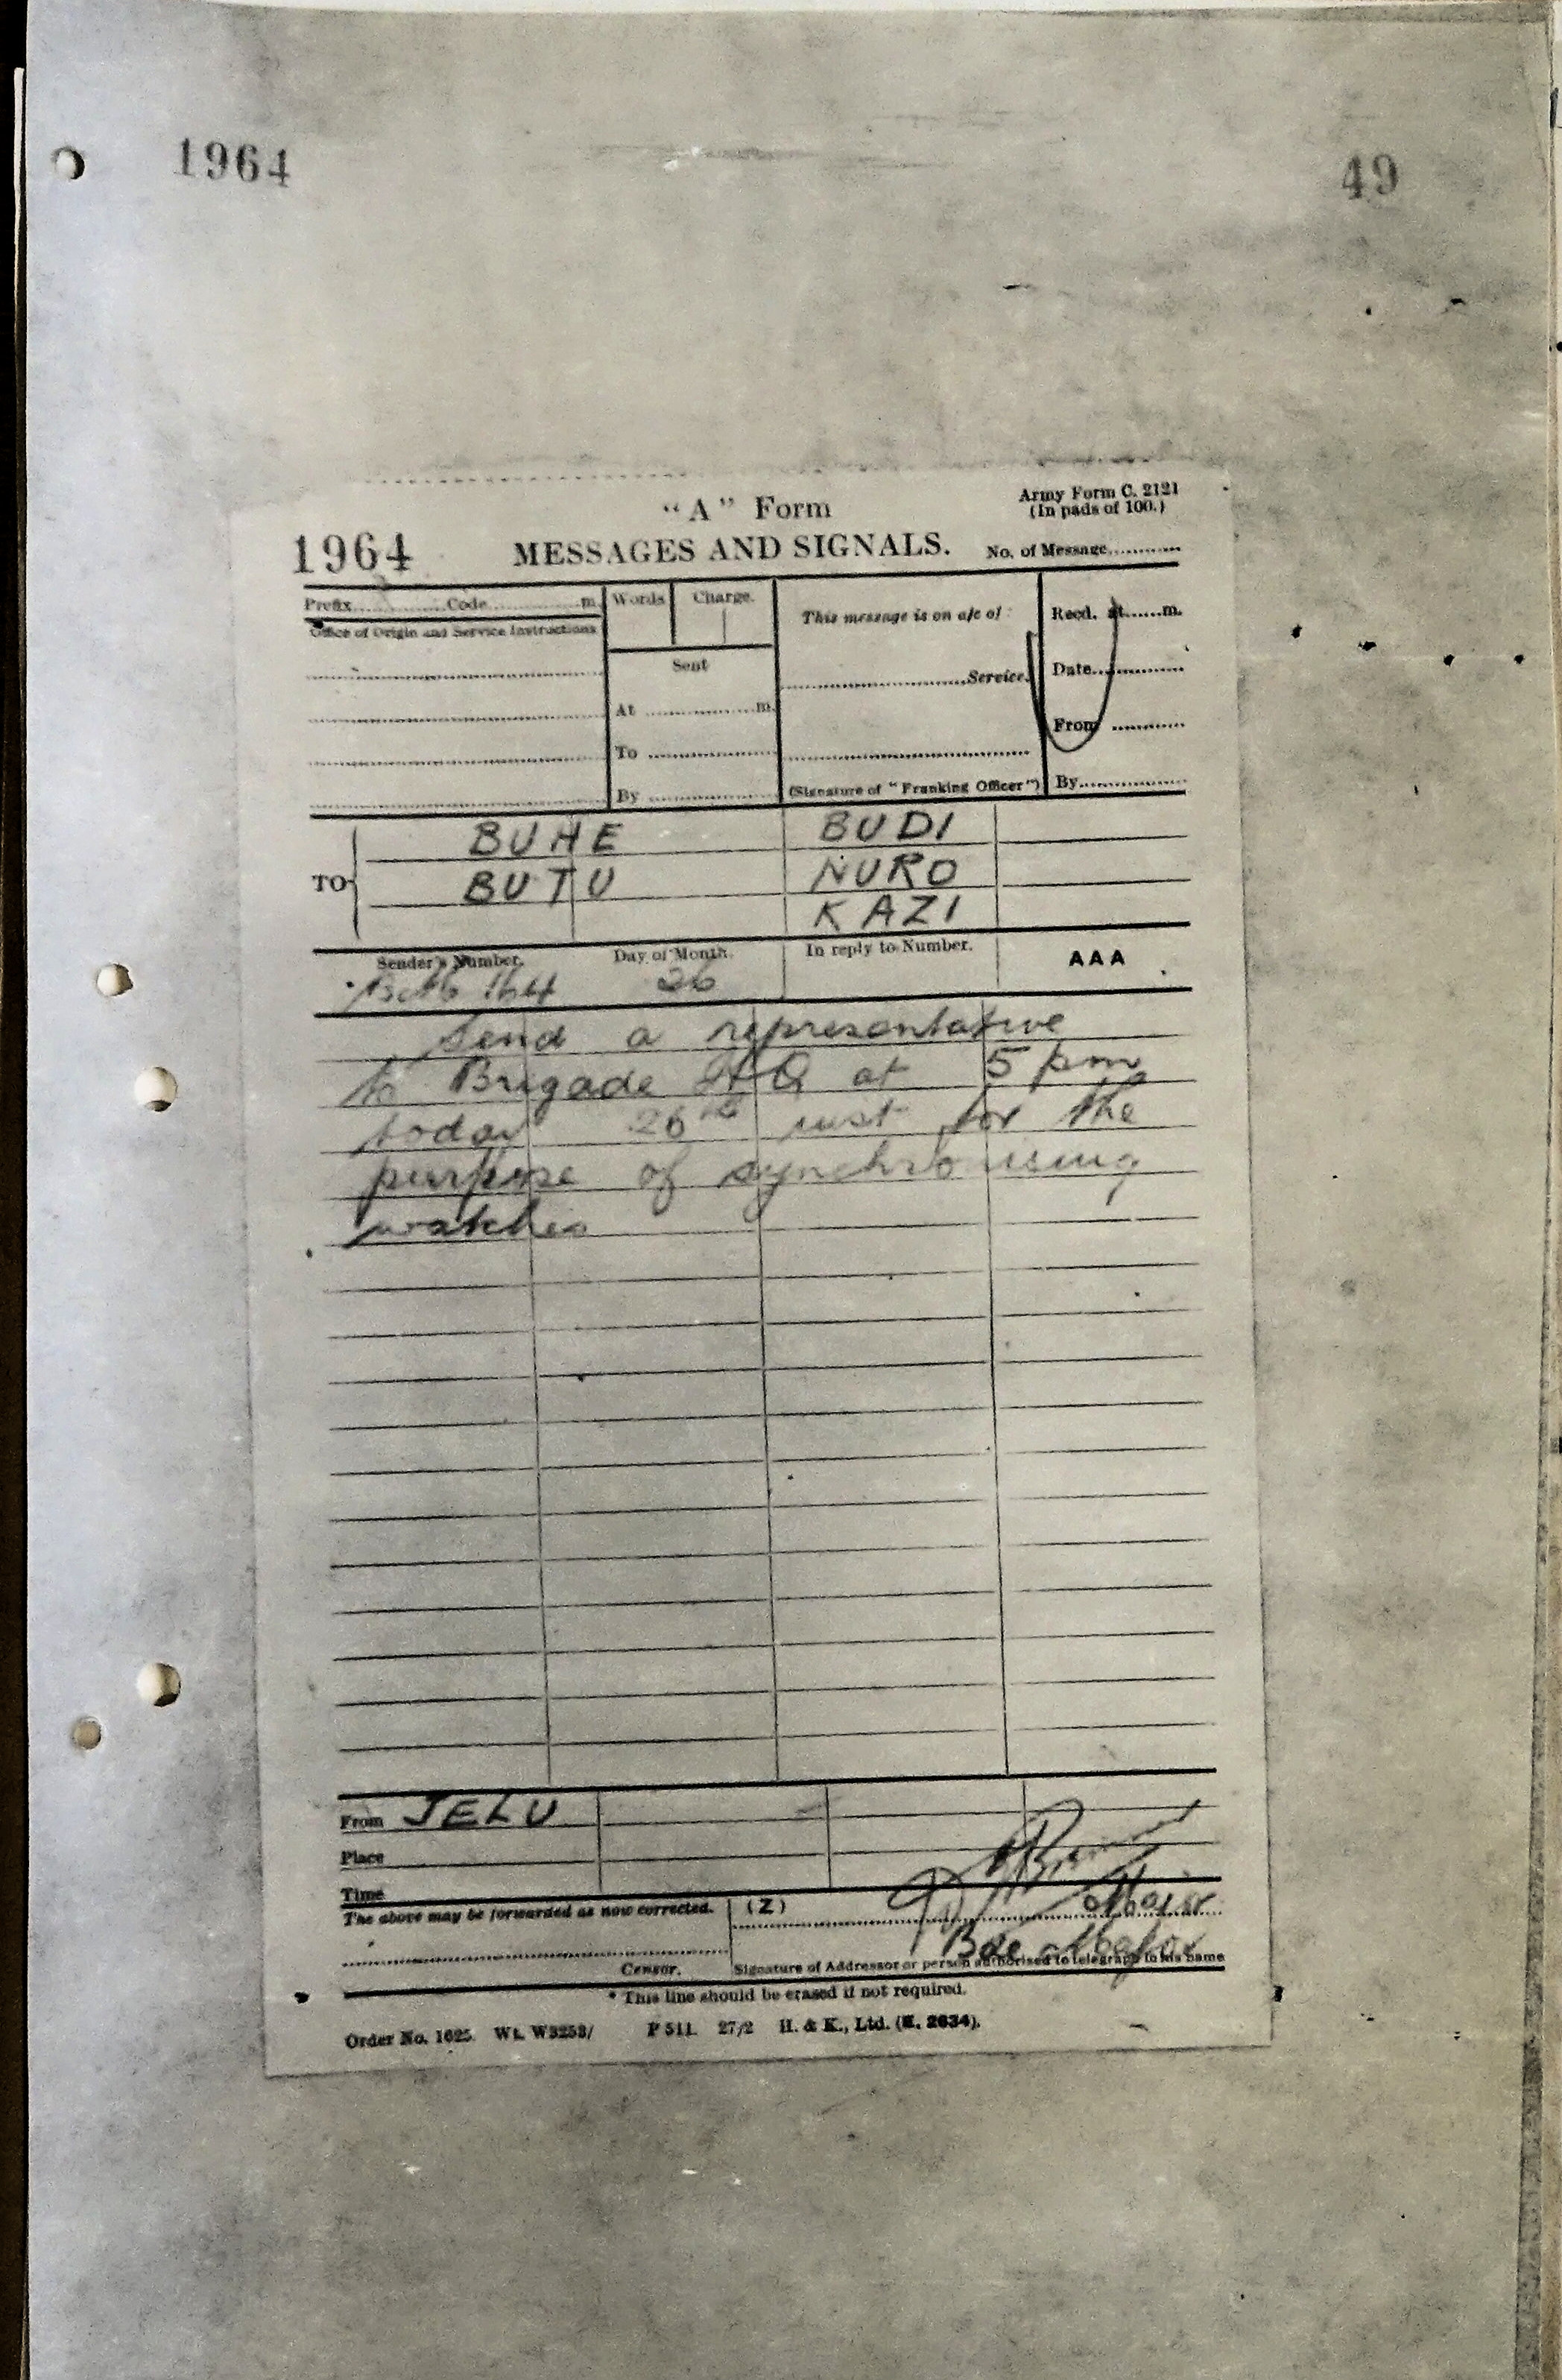 1964 49
"A" Form
Army Form C. 2121
(In pads of 100.)
1964 MESSAGES AND SIGNALS. No. of Message............
Prefix...............Code...............m. Words Charge.
This message is on a/c of : Recd. at......m.
Office of Origin and Service Instructions
Sent
....................Service. Date.............
At ...............m.
To ............... From ............
By ............... (Signature of "Franking Officer") By...............
TO BUHE BUDI
BUTU NURO
KAZI
Sender's Number. Day of Month. In reply to Number. AAA
164 26
Send a representative
to Brigade HQ at 5 pm
today 26th inst for the
purpose of synchronising
watches
From JELU
Place
Time
The above may be forwarded as now corrected. (Z) Major
Bde Major
Censor. Signature of Addressor or person authorised to telegraph in his name
* This line should be erased if not required.
Order No. 1625. Wt. W3253/ P 511. 27/2 H. & K., Ltd. (E. 2634).